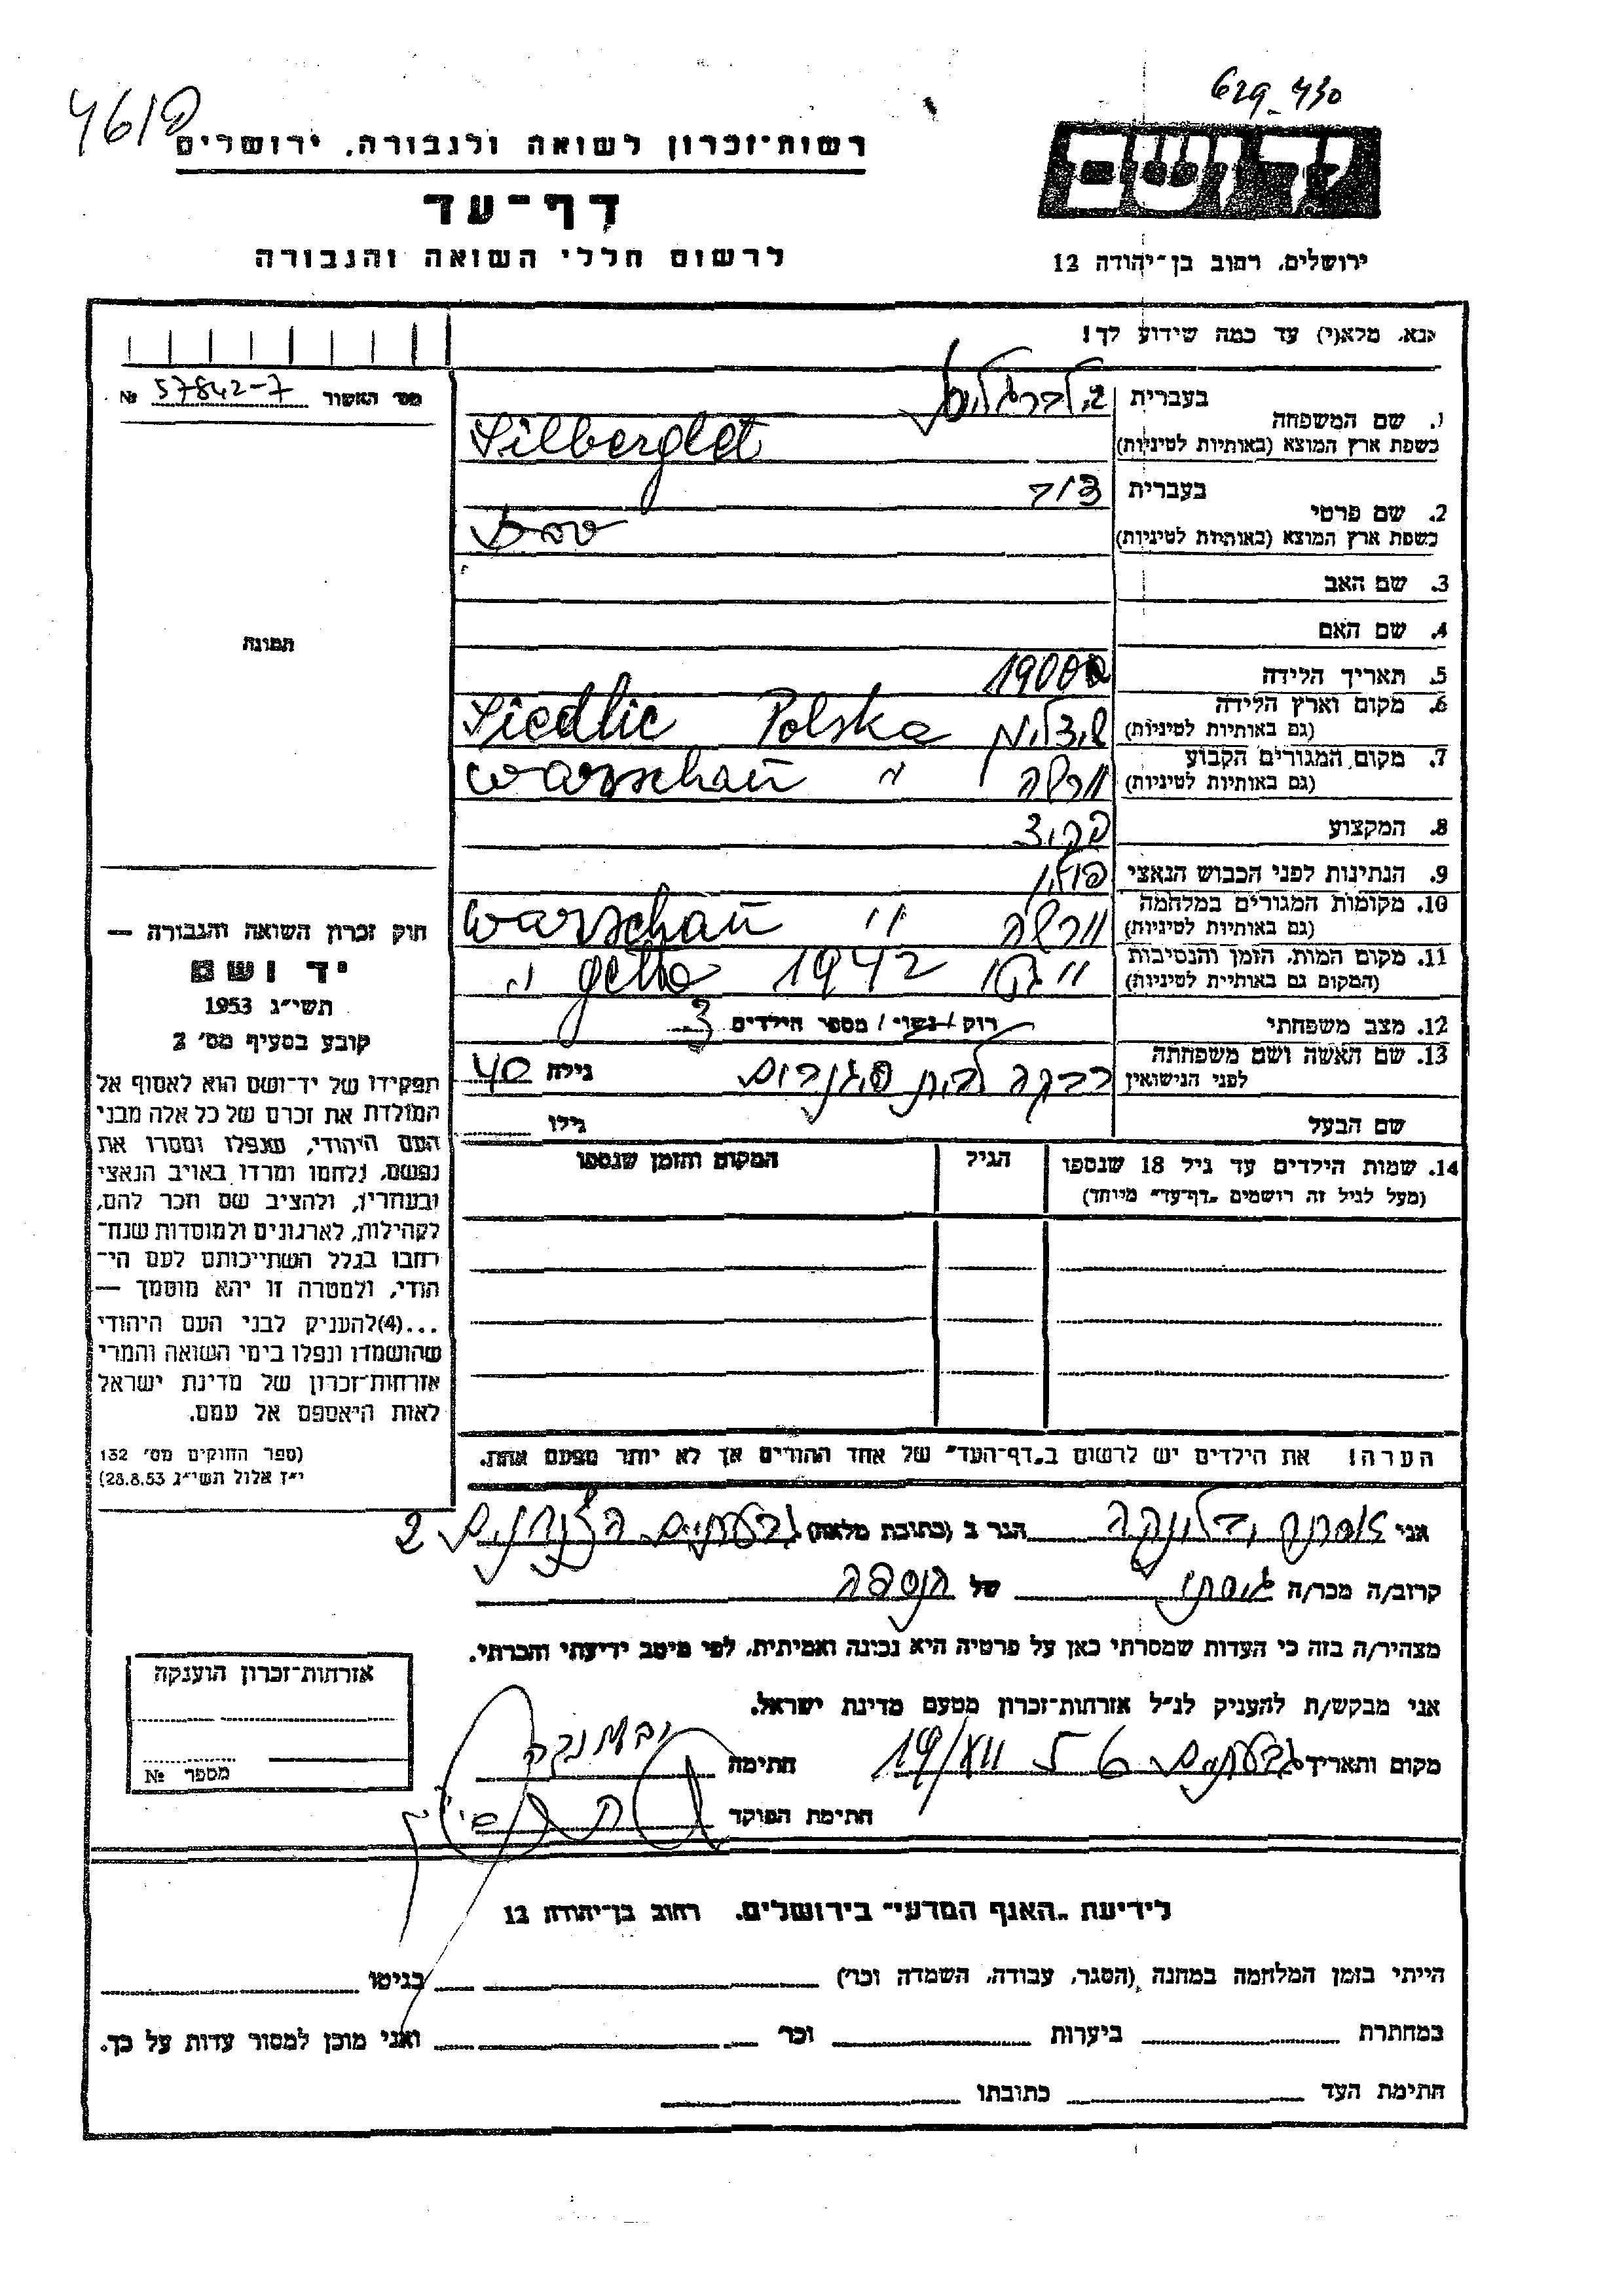 4618
629-430
רשות-זכרון לשואה ולגבורה, ירושלים
דף-עד
לרשום חללי השואה והגבורה
ידושם
ירושלים, רחוב בן-יהודה 12
אנא, מלא(י) עד כמה שידוע לך!
מס׳ האשור 57842-7 №
1. שם המשפחה בעברית
כשפת ארץ המוצא (באותיות לטיניות) Silberglet
2. שם פרטי בעברית דוד
כשפת ארץ המוצא (באותיות לטיניות)
3. שם האב
4. שם האם
תמונה
5. תאריך הלידה 1900
6. מקום וארץ הלידה
(גם באותיות לטיניות) Polska Siedlic
7. מקום המגורים הקבוע
(גם באותיות לטיניות) ורשה " Warschau
8. המקצוע פקיד
9. הנתינות לפני הכבוש הנאצי פולני
10. מקומות המגורים במלחמה
(גם באותיות לטיניות) ורשה " Warschau
11. מקום המות, הזמן והנסיבות
(המקום גם באותיית לטיניות) " גטו 1942 getto "
12. מצב משפחתי רוק / נשוי / מספר הילדים 3
13. שם האשה ושם משפחתה
לפני הנישואין רבקה לבית גילה 40
שם הבעל גילו
14. שמות הילדים עד גיל 18 שנספו הגיל המקום והזמן שנספו
(מעל לגיל זה רושמים „דף-עד" מיוחד)
הערה! את הילדים יש לרשום ב„דף-העד" של אחד ההורים אך לא יותר מפעם אחת.
חוק זכרון השואה והגבורה —
יד ושם
תשי״ג 1953
קובע בסעיף מס׳ 2
תפקידו של יד-ושם הוא לאסוף אל
המולדת את זכרם של כל אלה מבני
העם היהודי, שנפלו ומסרו את
נפשם, נלחמו ומרדו באויב הנאצי
ובעוזריו, ולהציב שם וזכר להם,
לקהילות, לארגונים ולמוסדות שנח-
רחבו בגלל השתייכותם לעם הי-
הודי, ולמטרה זו יהא מוסמך —
...(4)להעניק לבני העם היהודי
שהושמדו ונפלו בימי השואה והמרי
אזרחות-זכרון של מדינת ישראל
לאות היאספם אל עמם.
(ספר החוקים מס׳ 132
י״ז אלול תשי״ג 28.8.53)
אני הגר ב (כתובת מלאה) גבעתיים 2
קרוב/ה מכר/ה גיסתי של הנספה
מצהיר/ה בזה כי העדות שמסרתי כאן על פרטיה היא נכונה ואמיתית, לפי מיטב ידיעתי והכרתי.
אני מבקש/ת להעניק לנ״ל אזרחות-זכרון מטעם מדינת ישראל.
מקום ותאריך גבעתיים 19/VII חתימה
חתימת הפוקד
אזרחות-זכרון הוענקה
מספר №
לידיעת „האגף המדעי" בירושלים, רחוב בן-יהודה 12
הייתי בזמן המלחמה במחנה (הסגר, עבודה, השמדה וכר׳) בגיטו
במחתרת ביערות וכר׳ ואני מוכן למסור עדות על כך.
חתימת העד כתובתו